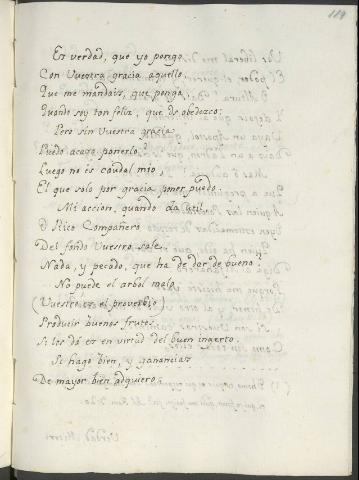 119
Es verdad, que yo pongo
Con Vuestra gracia aquello,
Que me mandais, que ponga,
Quando soy tan feliz, que os obedezco:
Pero sin Vuestra gracia
Puedo acaso ponerlo?
Luego no es caudal mio,
El que solo por gracia poner puedo.
Mi accion, quando da util,
O Rico Compañero
Del fondo Vuestro sale.
Nada, y pecado, que ha de dar de bueno?
No puede el arbol malo
(Vuestro es el proverbio)
Producir buenos frutos.
Si los dá es en virtud del buen ingerto.
Si hago bien, y ganancias
De mayor bien adquiero,